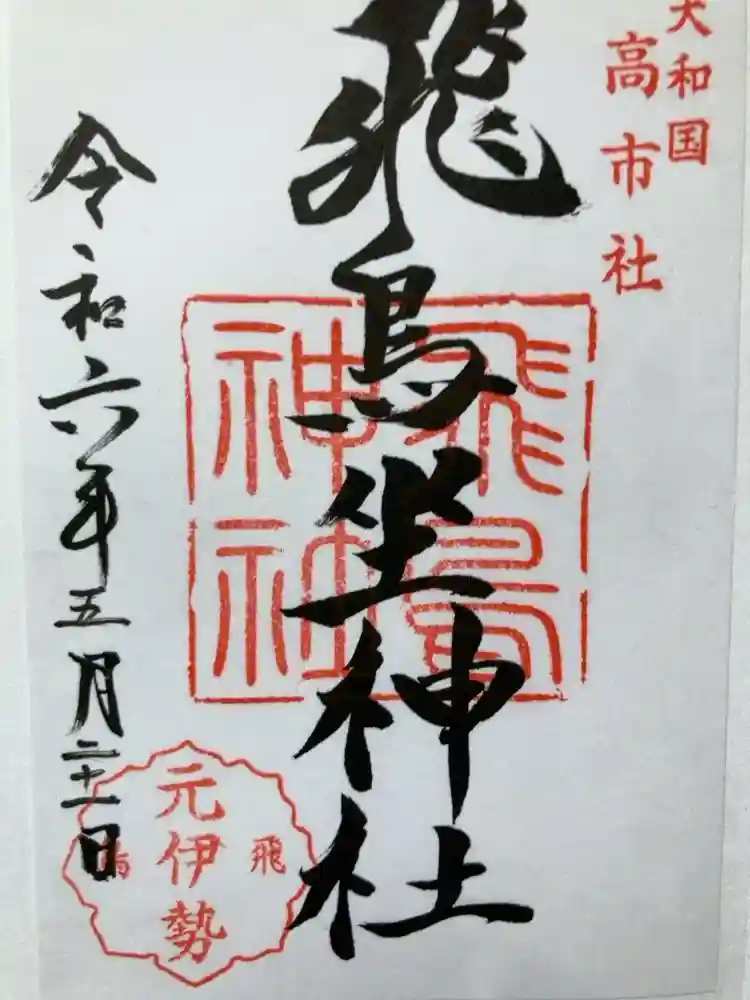 大和国
高市社
飛鳥坐神社
飛鳥
神社
令和六年五月二十一日
元伊勢
飛
鳥